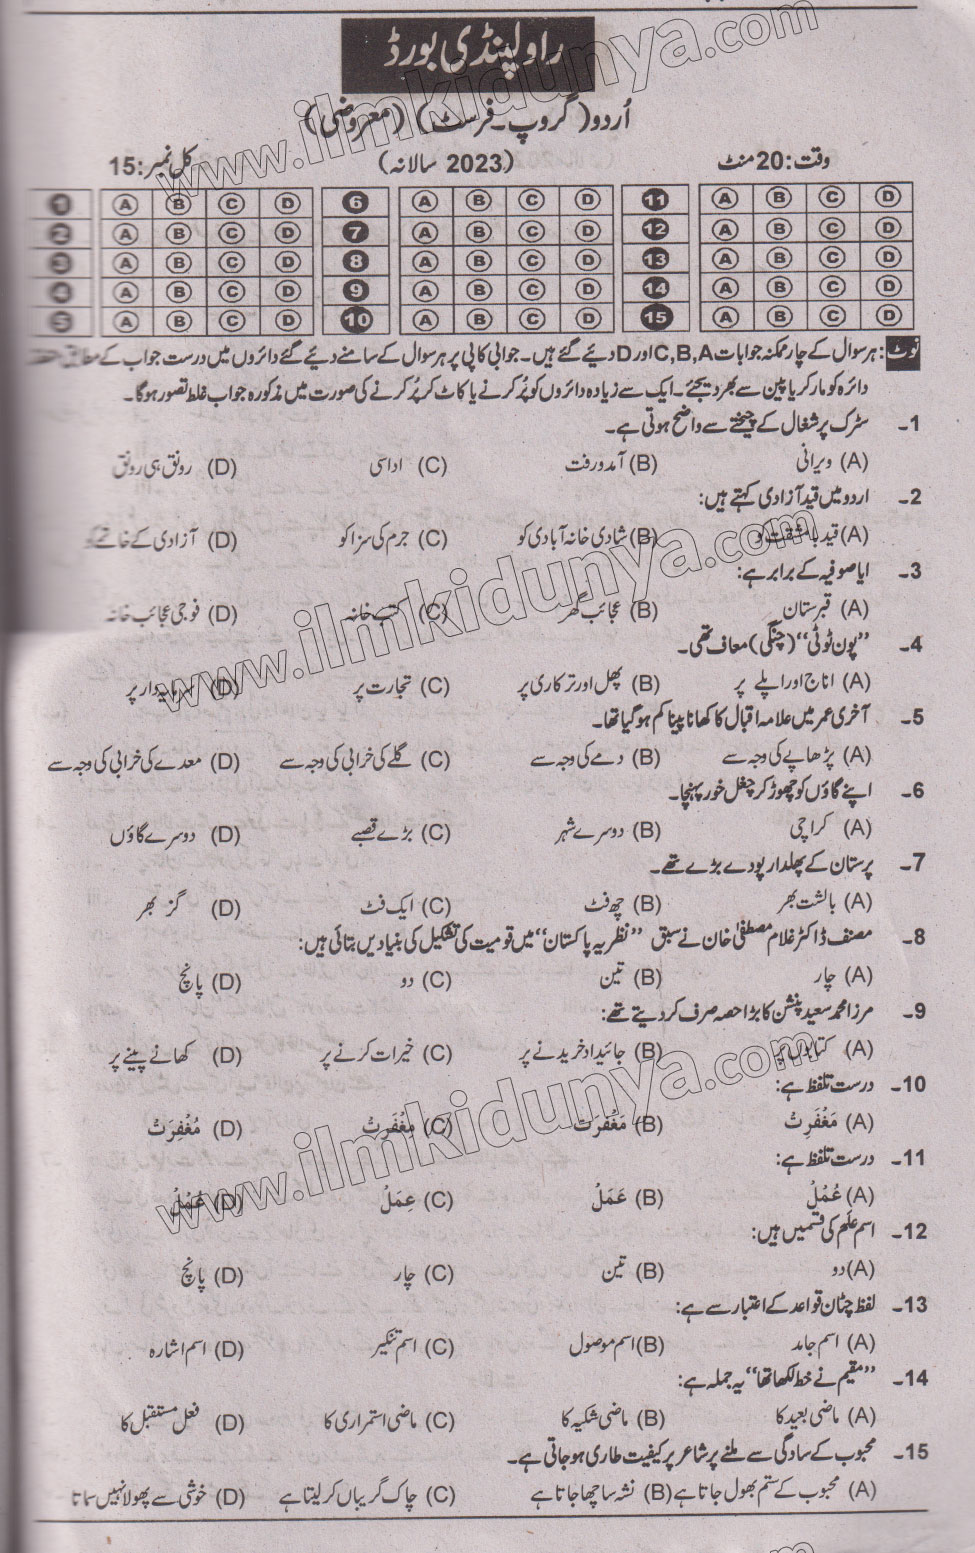 راولپنڈی بورڈ
اُردو (گروپ۔فرسٹ) (معروضی)
وقت: 20 منٹ (2023 سالانہ) کل نمبر: 15
1 A B C D 6 A B C D 11 A B C D
2 A B C D 7 A B C D 12 A B C D
3 A B C D 8 A B C D 13 A B C D
4 A B C D 9 A B C D 14 A B C D
5 A B C D 10 A B C D 15 A B C D
نوٹ: ہر سوال کے چار ممکنہ جوابات C,B,A اور D دیئے گئے ہیں۔ جوابی کاپی پر ہر سوال کے سامنے دیئے گئے دائروں میں درست جواب کے مطابق متعلقہ
دائرہ کو مارکر یا پین سے بھر دیجئے۔ ایک سے زیادہ دائروں کو پُر کرنے یا کاٹ کر پُر کرنے کی صورت میں مذکورہ جواب غلط تصور ہوگا۔
1۔ سڑک پر شغال کے چیخنے سے واضح ہوتی ہے۔
(A) ویرانی (B) آمد و رفت (C) اداسی (D) رونق ہی رونق
2۔ اردو میں قید آزادی کہتے ہیں:
(A) قید با مشقت کو (B) شادی خانہ آبادی کو (C) جرم کی سزا کو (D) آزادی کے خاتمے کو
3۔ ایا صوفیہ کے برابر ہے:
(A) قبرستان (B) عجائب گھر (C) کتب خانہ (D) فوجی عجائب خانہ
4۔ ”پون ٹوٹی“ (چنگی) معاف تھی۔
(A) اناج اور اپلے پر (B) پھل اور ترکاری پر (C) تجارت پر (D) سرمایہ دار پر
5۔ آخری عمر میں علامہ اقبال کا کھانا پینا کم ہو گیا تھا۔
(A) بڑھاپے کی وجہ سے (B) دمے کی وجہ سے (C) گلے کی خرابی کی وجہ سے (D) معدے کی خرابی کی وجہ سے
6۔ اپنے گاؤں کو چھوڑ کر چغل خور پہنچا۔
(A) کراچی (B) دوسرے شہر (C) بڑے قصبے (D) دوسرے گاؤں
7۔ پرستان کے پھلدار پودے بڑے تھے۔
(A) بالشت بھر (B) چھ فٹ (C) ایک فٹ (D) گز بھر
8۔ مصنف ڈاکٹر غلام مصطفیٰ خان نے سبق ”نظریہ پاکستان“ میں قومیت کی تشکیل کی بنیادیں بتائی ہیں:
(A) چار (B) تین (C) دو (D) پانچ
9۔ مرزا محمد سعید پنشن کا بڑا حصہ صرف کر دیتے تھے:
(A) کتابوں پر (B) جائیداد خریدنے پر (C) خیرات کرنے پر (D) کھانے پینے پر
10۔ درست تلفظ ہے:
(A) مَغْفَرِتْ (B) مَغْفَرَتْ (C) مِغْفَرِتْ (D) مُغْفِرَتْ
11۔ درست تلفظ ہے:
(A) عُمْلُ (B) عَمَلُ (C) عِمَلُ (D) عُمُلُ
12۔ اسم عَلَم کی قسمیں ہیں:
(A) دو (B) تین (C) چار (D) پانچ
13۔ لفظ چٹان قواعد کے اعتبار سے ہے:
(A) اسم جامد (B) اسم موصول (C) اسم تنکیر (D) اسم اشارہ
14۔ ”مقیم نے خط لکھا تھا“ یہ جملہ ہے:
(A) ماضی بعید کا (B) ماضی شکیہ کا (C) ماضی استمراری کا (D) فعل مستقبل کا
15۔ محبوب کے سادگی سے ملنے پر شاعر پر کیفیت طاری ہو جاتی ہے۔
(A) محبوب کے ستم بھول جاتا ہے (B) نشہ سا چھا جاتا ہے (C) چاک گریباں کر لیتا ہے (D) خوشی سے پھولا نہیں سماتا
www.ilmkidunya.com
www.ilmkidunya.com
www.ilmkidunya.com